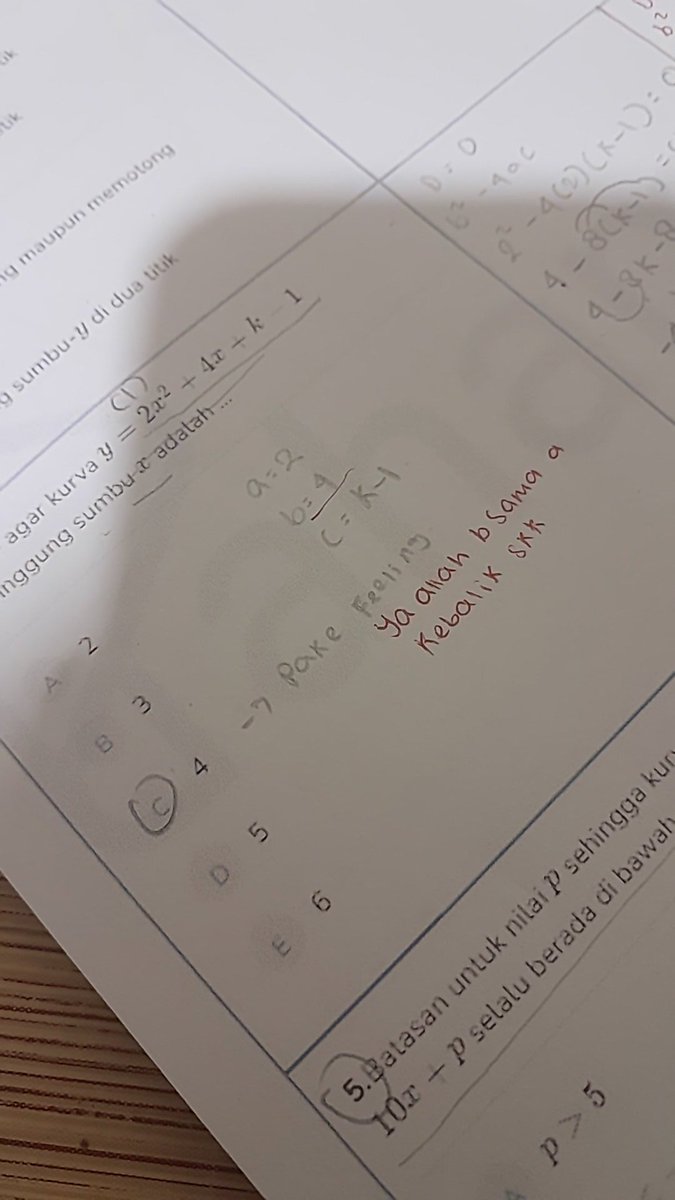 maupun memotong
sumbu-y di dua titik
agar kurva y = 2x² + 4x + k − 1
sumbu-x adalah ...
(1)
a = 2
b = 4
c = k-1
A 2
B 3
C 4 → Pake Feeling
Ya allah b sama a
Kebalik skk
D 5
E 6
D = 0
b² - 4ac
2² - 4(2)(k-1) = 0
4 - 8(k-1) =
4 - 8k - 8
5. Batasan untuk nilai p sehingga
10x + p selalu berada di bawah
p > 5